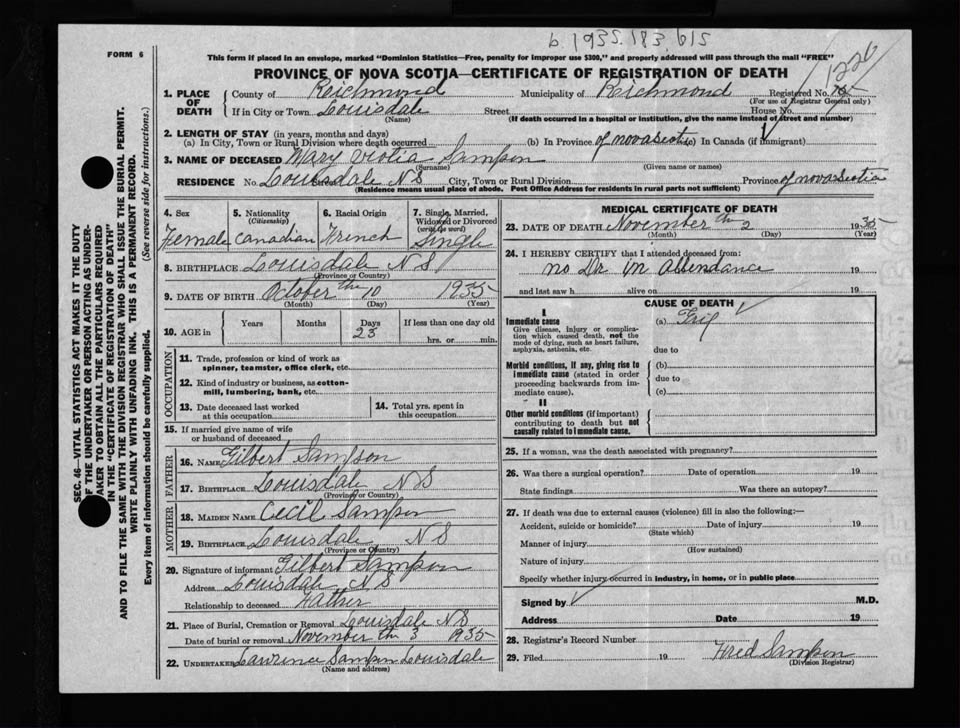 b. 1935. 183. 615
FORM 6
This form if placed in an envelope, marked "Dominion Statistics—Free, penalty for improper use $300," and properly addressed will pass through the mail "FREE"
1226
PROVINCE OF NOVA SCOTIA—CERTIFICATE OF REGISTRATION OF DEATH
1. PLACE OF DEATH { County of Richmond Municipality of Richmond Registered No.
(For use of Registrar General only)
If in City or Town Louisdale Street House No.
(Name) (If death occurred in a hospital or institution, give the name instead of street and number)
2. LENGTH OF STAY (in years, months and days)
(a) In City, Town or Rural Division where death occurred (b) In Province of nova Scotia (c) In Canada (if immigrant)
3. NAME OF DECEASED Mary Sampson
(Surname) (Given name or names)
RESIDENCE No. Louisdale Street N S City, Town or Rural Division Province of nova Scotia
(Residence means usual place of abode. Post Office Address for residents in rural parts not sufficient)
4. Sex Female
5. Nationality (Citizenship) Canadian
6. Racial Origin French
7. Single, Married, Widowed or Divorced (write the word) Single
8. BIRTHPLACE Louisdale N S
(Province or Country)
9. DATE OF BIRTH October th 10 1935
(Month) (Day) (Year)
10. AGE in Years Months Days 23 If less than one day old
hrs. or min.
OCCUPATION
11. Trade, profession or kind of work as spinner, teamster, office clerk, etc.
12. Kind of industry or business, as cotton-mill, lumbering, bank, etc.
13. Date deceased last worked at this occupation
14. Total yrs. spent in this occupation
15. If married give name of wife or husband of deceased
FATHER
16. NAME Gilbert Sampson
17. BIRTHPLACE Louisdale N S
(Province or Country)
MOTHER
18. MAIDEN NAME Cecil Sampson
19. BIRTHPLACE Louisdale N S
(Province or Country)
20. Signature of informant Gilbert Sampson
Address Louisdale N S
Relationship to deceased Father
21. Place of Burial, Cremation or Removal Louisdale N S
Date of burial or removal November th 3 1935
22. UNDERTAKER Lawrence Sampson Louisdale
(Name and address)
MEDICAL CERTIFICATE OF DEATH
23. DATE OF DEATH November th 2 1935
(Month) (Day) (Year)
24. I HEREBY CERTIFY that I attended deceased from:
no Dr in Attendance 19
and last saw h alive on 19
CAUSE OF DEATH
I
Immediate cause
Give disease, injury or complication which caused death, not the mode of dying, such as heart failure, asphyxia, asthenia, etc.
(a) Grip
due to
Morbid conditions, if any, giving rise to immediate cause (stated in order proceeding backwards from immediate cause).
(b)
due to
(c)
II
Other morbid conditions (if important) contributing to death but not causally related to immediate cause.
25. If a woman, was the death associated with pregnancy?
26. Was there a surgical operation? Date of operation 19
State findings Was there an autopsy?
27. If death was due to external causes (violence) fill in also the following:—
Accident, suicide or homicide? Date of injury 19
(State which)
Manner of injury
(How sustained)
Nature of injury
Specify whether injury occurred in industry, in home, or in public place
Signed by M.D.
Address Date 19
28. Registrar's Record Number
29. Filed 19 Fred Sampson
(Division Registrar)
SEC. 46—VITAL STATISTICS ACT MAKES IT THE DUTY
OF THE UNDERTAKER OR PERSON ACTING AS UNDERTAKER TO OBTAIN ALL THE PARTICULARS REQUIRED
IN THE "CERTIFICATE OF REGISTRATION OF DEATH"
AND TO FILE THE SAME WITH THE DIVISION REGISTRAR WHO SHALL ISSUE THE BURIAL PERMIT.
WRITE PLAINLY WITH UNFADING INK. THIS IS A PERMANENT RECORD.
Every item of information should be carefully supplied. (See reverse side for instructions.)